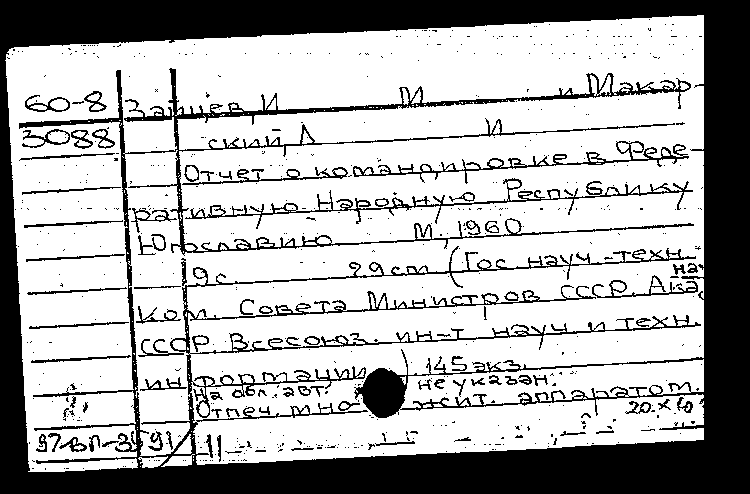 60-8 Зайцев, И М и Макар-
3088 ский, Л И
Отчет о командировке в Феде-
ративную Народную Республику
Югославию М., 1960
9 с. 29 см (Гос науч-техн.
ком. Совета Министров СССР. Ака
СССР. Всесоюз. ин-т науч и техн.
информации ) 145 экз.
На обл. авт. не указан.
Отпеч. мно жит. аппаратом.
20.X 60
97-ВП-31 91 11